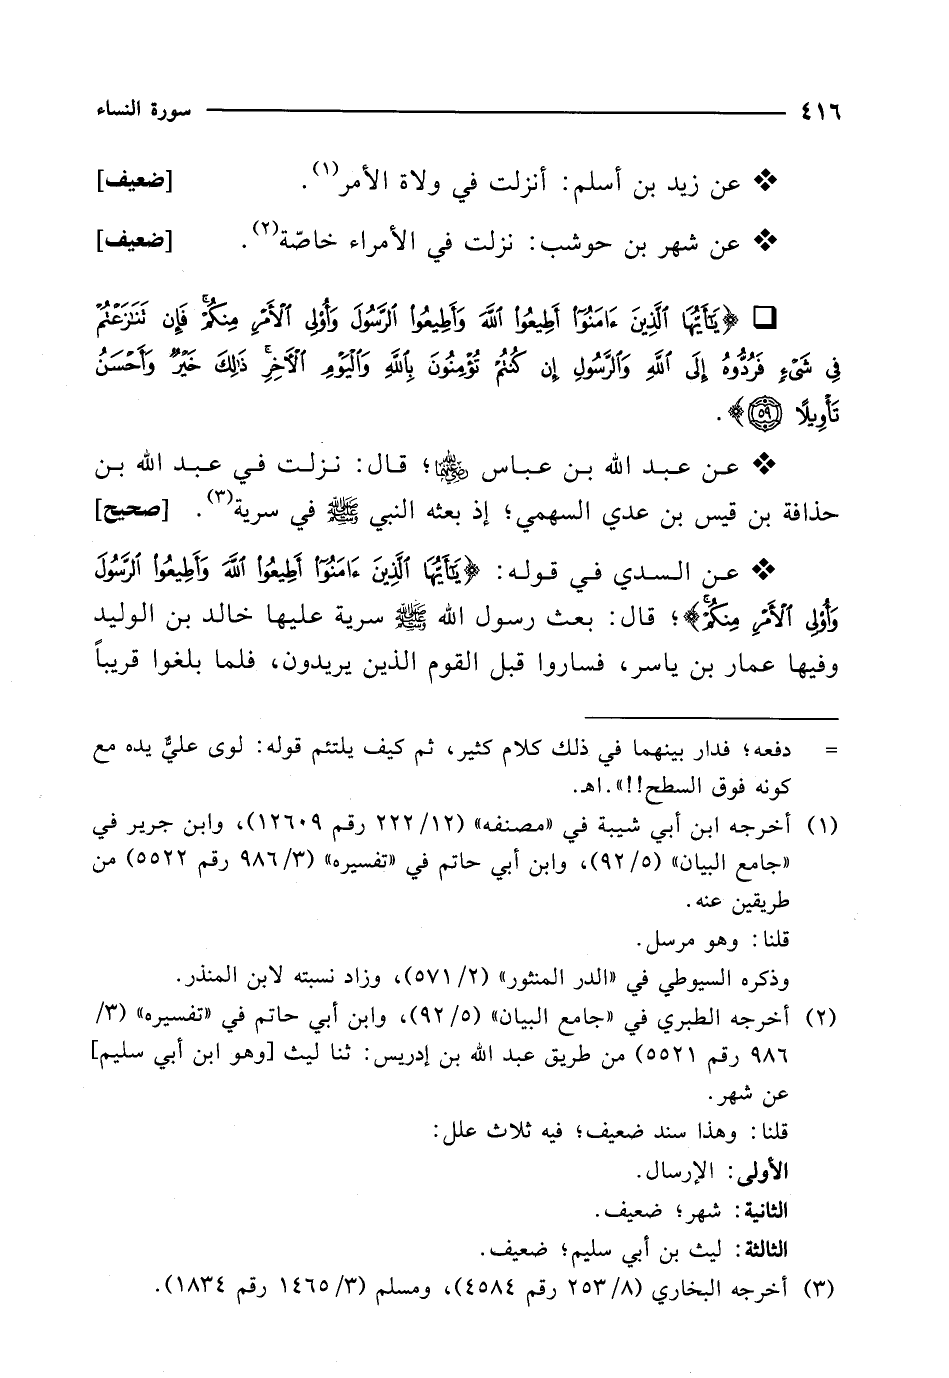 ٤١٦ سورة النساء
❖ عن زيد بن أسلم: أنزلت في ولاة الأمر(١). [ضعيف]
❖ عن شهر بن حوشب: نزلت في الأمراء خاصّة(٢). [ضعيف]
❑ ﴿يَٰٓأَيُّهَا ٱلَّذِينَ ءَامَنُوٓا۟ أَطِيعُوا۟ ٱللَّهَ وَأَطِيعُوا۟ ٱلرَّسُولَ وَأُو۟لِى ٱلْأَمْرِ مِنكُمْ ۖ فَإِن تَنَٰزَعْتُمْ
فِى شَىْءٍ فَرُدُّوهُ إِلَى ٱللَّهِ وَٱلرَّسُولِ إِن كُنتُمْ تُؤْمِنُونَ بِٱللَّهِ وَٱلْيَوْمِ ٱلْءَاخِرِ ۚ ذَٰلِكَ خَيْرٌ وَأَحْسَنُ
تَأْوِيلًا ٥٩﴾.
❖ عن عبد الله بن عباس ﷺ؛ قال: نزلت في عبد الله بن
حذافة بن قيس بن عدي السهمي؛ إذ بعثه النبي ﷺ في سرية(٣). [صحيح]
❖ عن السدي في قوله: ﴿يَٰٓأَيُّهَا ٱلَّذِينَ ءَامَنُوٓا۟ أَطِيعُوا۟ ٱللَّهَ وَأَطِيعُوا۟ ٱلرَّسُولَ
وَأُو۟لِى ٱلْأَمْرِ مِنكُمْ﴾؛ قال: بعث رسول الله ﷺ سرية عليها خالد بن الوليد
وفيها عمار بن ياسر، فساروا قبل القوم الذين يريدون، فلما بلغوا قريباً
= دفعه؛ فدار بينهما في ذلك كلام كثير، ثم كيف يلتئم قوله: لوى عليٌّ يده مع
كونه فوق السطح!!».اهـ.
(١) أخرجه ابن أبي شيبة في «مصنفه» (١٢/ ٢٢٢ رقم ١٢٦٠٩)، وابن جرير في
«جامع البيان» (٥/ ٩٢)، وابن أبي حاتم في «تفسيره» (٣/ ٩٨٦ رقم ٥٥٢٢) من
طريقين عنه.
قلنا: وهو مرسل.
وذكره السيوطي في «الدر المنثور» (٢/ ٥٧١)، وزاد نسبته لابن المنذر.
(٢) أخرجه الطبري في «جامع البيان» (٥/ ٩٢)، وابن أبي حاتم في «تفسيره» (٣/
٩٨٦ رقم ٥٥٢١) من طريق عبد الله بن إدريس: ثنا ليث [وهو ابن أبي سليم]
عن شهر.
قلنا: وهذا سند ضعيف؛ فيه ثلاث علل:
الأولى: الإرسال.
الثانية: شهر؛ ضعيف.
الثالثة: ليث بن أبي سليم؛ ضعيف.
(٣) أخرجه البخاري (٨/ ٢٥٣ رقم ٤٥٨٤)، ومسلم (٣/ ١٤٦٥ رقم ١٨٣٤).